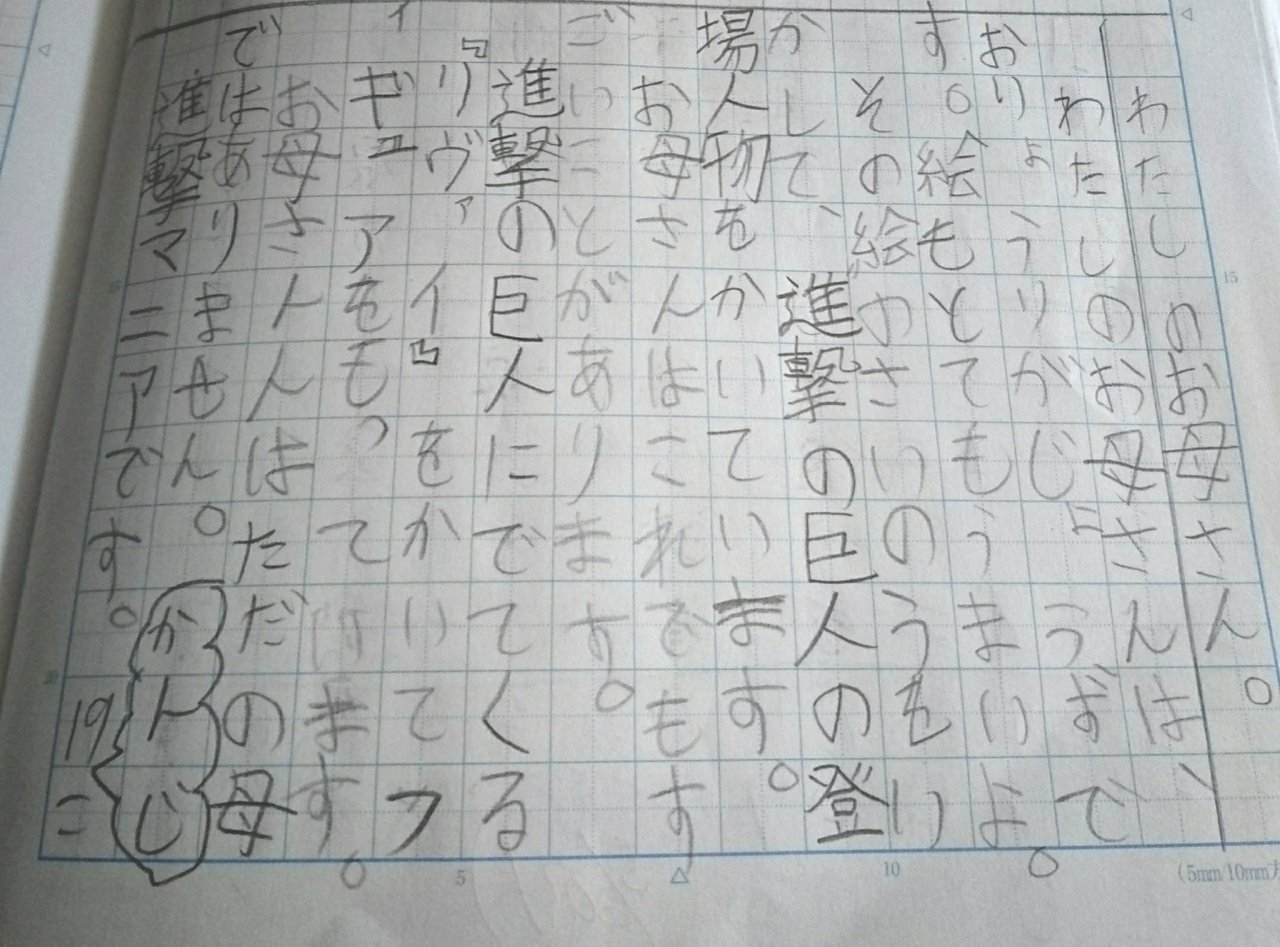 わたしのお母さん。
わたしのお母さんは、
おりょうりがじょうずで
す。絵もとてもうまいよ。
その絵のさいのうもい
かして、進撃の巨人の登
場人物をかいています。
お母さんはこれでもす
ごいことがあります。
進撃の巨人にでてくる
『リヴァイ』をかいてフ
ィギュアをもっています。
お母さんんはただの母
ではありません。
進撃マニアです。
かんじ
19こ